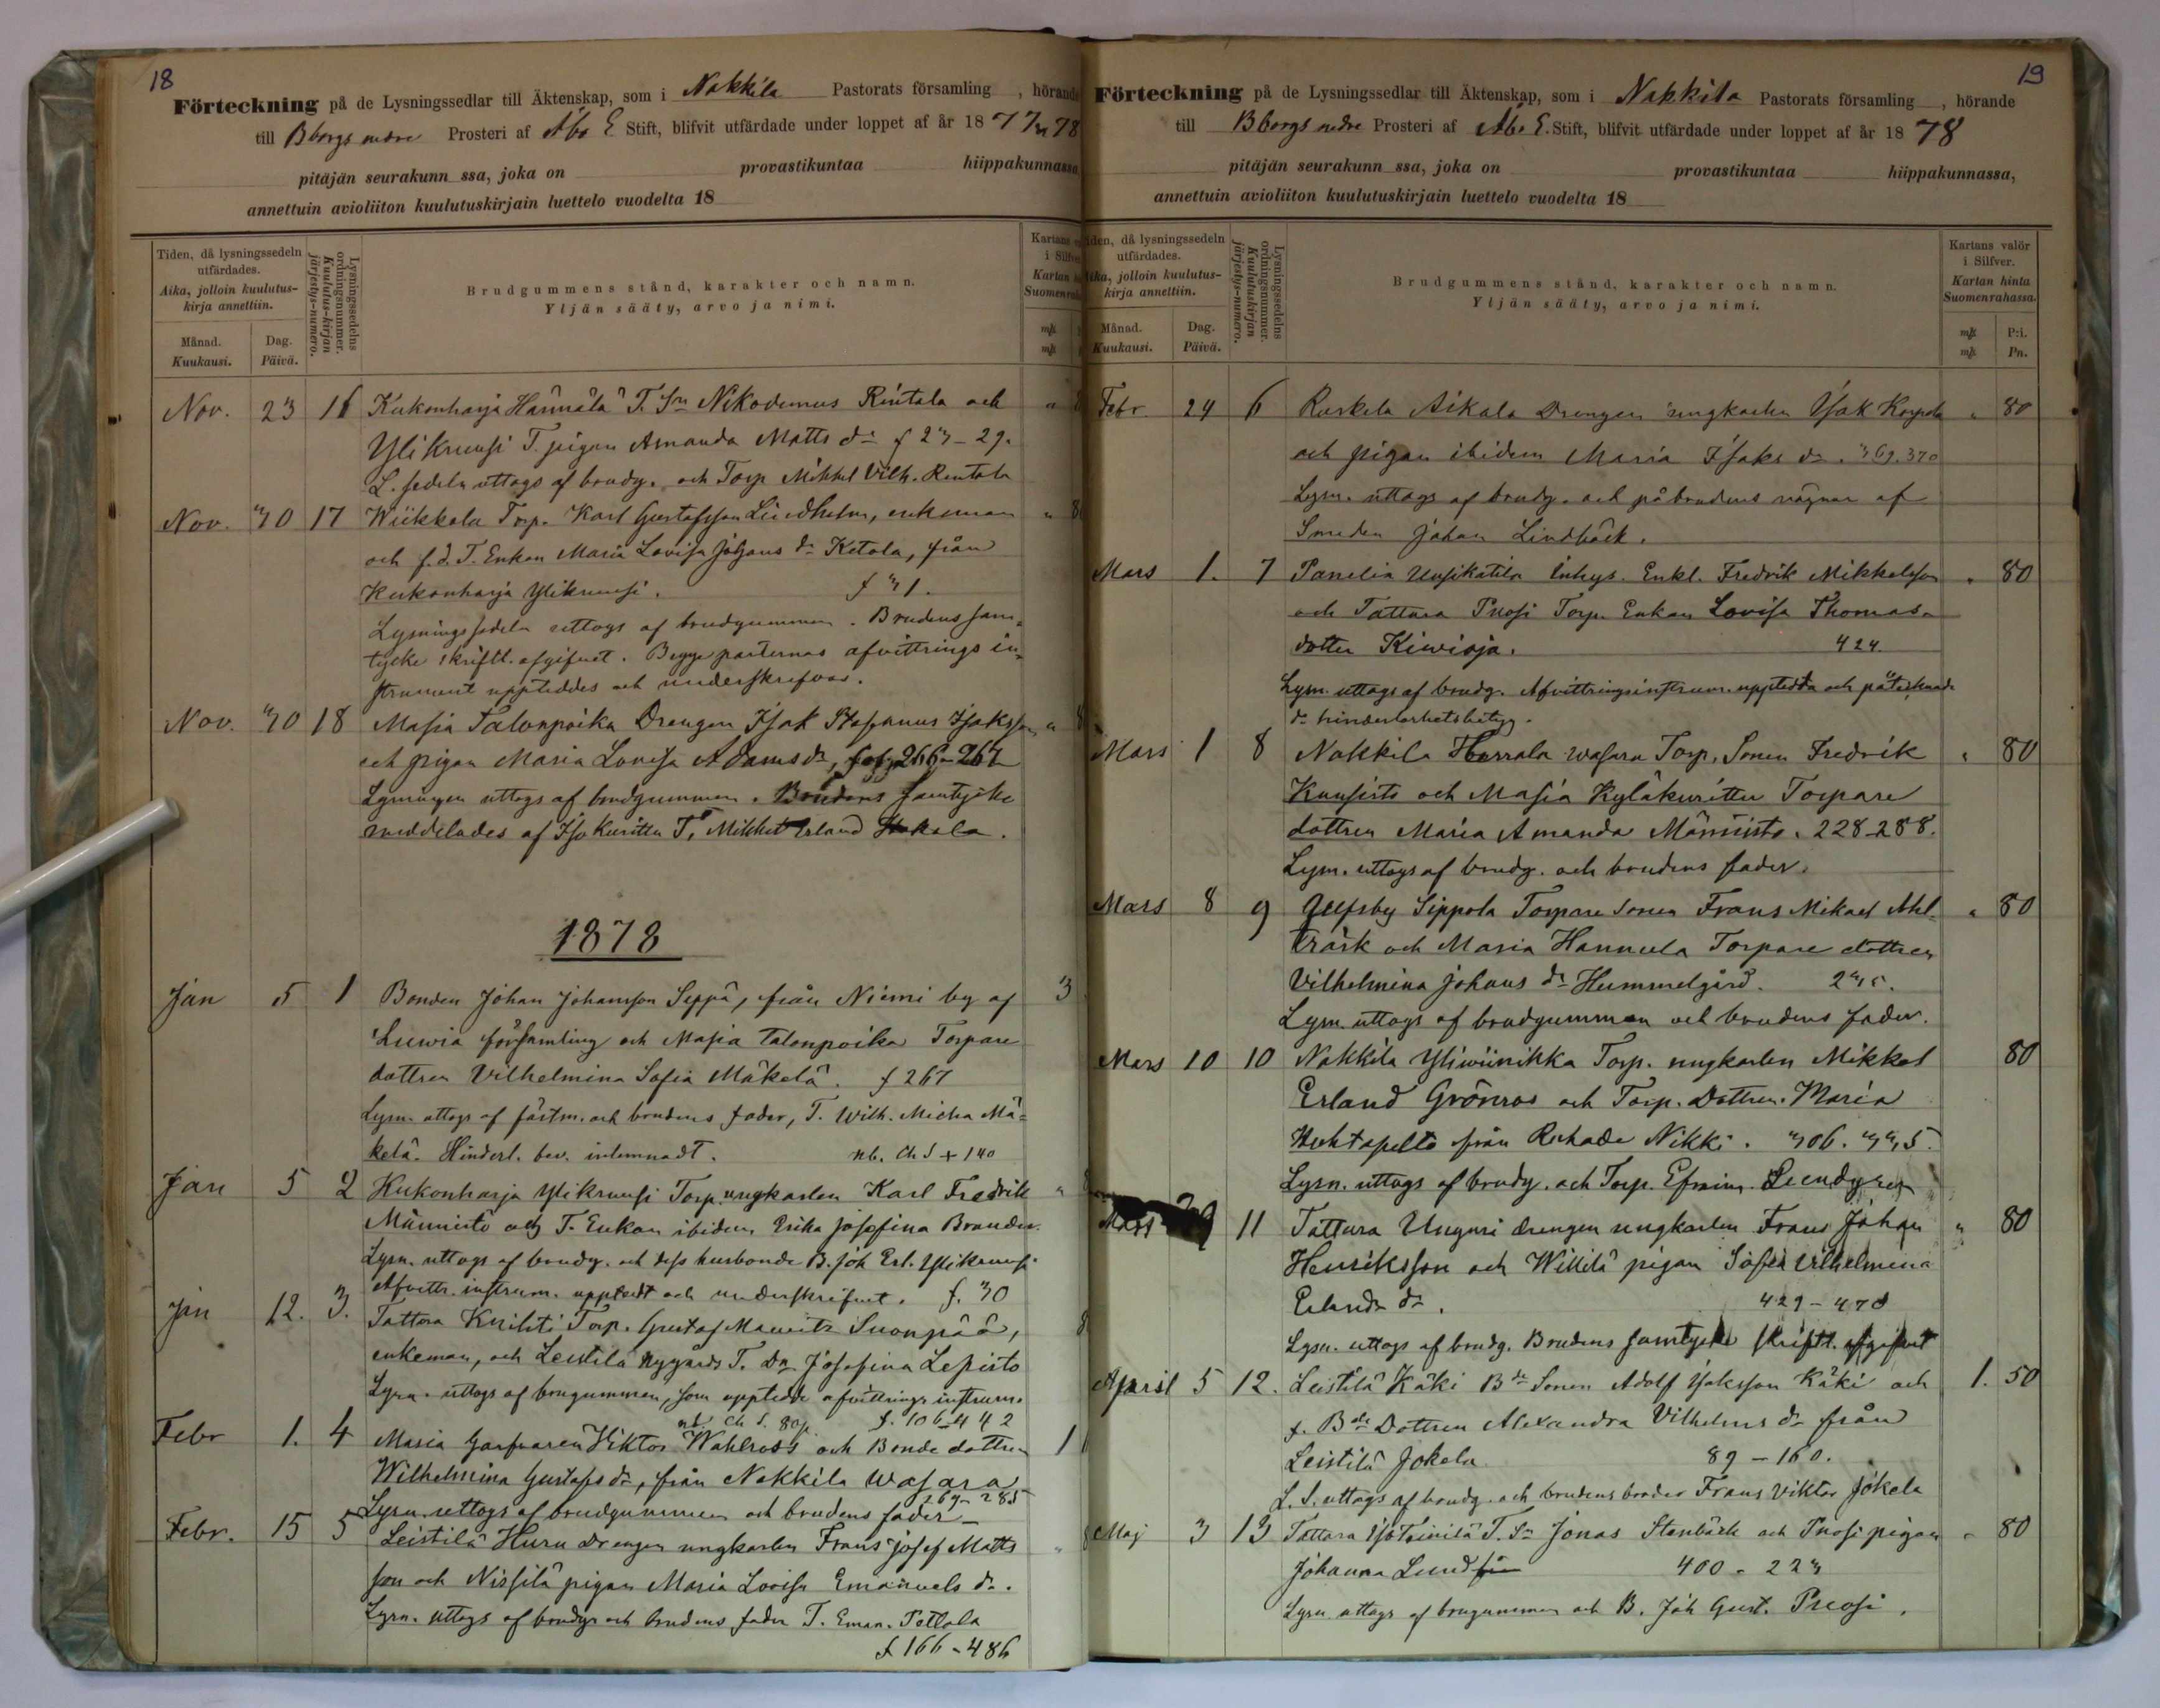 18
Förteckning på de Lysningssedlar till Äktenskap, som i Nakkila Pastorats församling , hörande
till Bborgs nedre Prosteri af Åbo E Stift, blifvit utfärdade under loppet af år 1877 78
pitäjän seurakunn ssa, joka on provastikuntaa hiippakunnassa
annettuin avioliiton kuulutuskirjain luettelo vuodelta 18
Tiden, då lysningssedeln utfärdades.
Aika, jolloin kuulutuskirja annettiin.
Månad. Kuukausi.
Dag. Päivä.
Lysningssedelns ordningsnummer.
Kuulutus-kirjan järjestys-numero.
Brudgummens stånd, karakter och namn.
Yljän sääty, arvo ja nimi.
Nov. 23 16 Kukonharja Hannala T. Sn Nikodemus Rintala och
Ylikruusi T. pigan Amanda Matts dr f 23-29.
L. sedeln uttogs af brudg. och Torp Mikkel Vilh. Rintala
Nov. 30 17 Wiikkala Torp. Karl Gustafsson Lindholm, enkeman
och f.d. T. Enkan Maria Lovisa Johans dr Ketola, från
Kukonharja Ylikruusi. f 31.
Lysningssedeln uttogs af brudgummen. Brudens sam=
tycke skriftl. afgifvet. Begge parternas afvittrings in=
strument uppteddes och underskrefvos.
Nov. 30 18 Masia Talonpoika Drengen Isak Stefanus Isaksson
och pigan Maria Lovisa Adams dr, 266-267
Lysningen uttogs af brudgummen. Brudens samtycke
meddelades af Iso Kuritten T. Mikkel Erland
1878
Jan 5 1 Bonden Johan Johansson Seppä, från Niemi by af 3
Luvia församling och Masia Talonpoika Torpare
dottren Vilhelmina Sofia Mäkelä. f 267
Lysn. uttogs af fästm. och brudens fader, T. Wilh. Micha Mä=
kelä. Hinderl. bev. inlemnadt. nb. Ch S + 140
Jan 5 2 Kukonharja Ylikruusi Torp. ungkarlen Karl Fredrik
Männistö och T. Enkan ibidem Erika Josefina Brander.
Lysn. uttogs af brudg. och dess husbonde B. Joh Erl. Ylikruusi
Afvittr. instrum. upptedt och underskrifvet. f. 30
Jan 12. 3. Tattara Knihti Torp. Gustaf Mauritz Suonpää,
enkeman, och Leistilä Nygårds T. Dr Josefina Lepistö
Lysn. uttogs af brugummen, som uppledde afvittrings instrum.
nb. Ch S. 80p f. 106-442
Febr 1. 4 Masia Garfvaren Viktor Wahlroos och Bonde dottren 1
Wilhelmina Gustafs dr, från Nakkila Wasara
269-285
Lysn. uttogs af brudgummen och brudens fader
Febr. 15 5 Leistilä Huru Drengen ungkarlen Frans Josef Matts
son och Nissilä pigan Maria Lovisa Emanuels dr.
Lysn. uttogs af brudg och brudens fader T. Eman. Peltola
f 166-486
19
Förteckning på de Lysningssedlar till Äktenskap, som i Nakkila Pastorats församling , hörande
till Bborgs nedre Prosteri af Åbo E. Stift, blifvit utfärdade under loppet af år 1878
pitäjän seurakunn ssa, joka on provastikuntaa hiippakunnassa,
annettuin avioliiton kuulutuskirjain luettelo vuodelta 18
iden, då lysningssedeln utfärdades.
ika, jolloin kuulutuskirja annettiin.
Månad. Kuukausi.
Dag. Päivä.
Lysningssedelns ordningsnummer.
Kuulutuskirjan järjestys-numero.
Brudgummens stånd, karakter och namn.
Yljän sääty, arvo ja nimi.
Kartans valör i Silfver.
Kartan hinta Suomenrahassa.
mk P:i.
mk Pn.
Febr. 24 6 Ruskela Aikala Drengen ungkarlen Isak Korpela " 80
och pigan ibidem Maria Isaks dr. 369. 370
Lysn. uttogs af brudg. och på brudens vägnar af
Smeden Johan Lindbäck.
Mars 1. 7 Panelia Uusikatila Inhys. Enkl. Fredrik Mikkelsson " 80
och Tattara Prosi Torp. Enkan Lovisa Thomas-
dotter Kiwioja. 424.
Lysn. uttogs af brudg. Afvittringsinstrum. uppledda och påtecknade
dr hinderlöshetsbetyg.
Mars 1 8 Nakkila Harrala Wasara Torp. Sonen Fredrik " 80
Kuusisto och Masia Kyläkuritten Torpare
dottren Maria Amanda Männistö. 228-288.
Lysn. uttogs af brudg. och brudens fader.
Mars 8 9 Ulfsby Sippola Torpare Sonen Frans Mikael Ahl- " 80
träsk och Masia Hannula Torpare dottren
Vilhelmina Johans dr Hummelgård. 235.
Lysn. uttogs af brudgummen och brudens fader.
Mars 10 10 Nakkila Yliwiinikka Torp. ungkarlen Mikkel 80
Erland Grönroos och Torp. Dottren. Maria
Huhtapelto från Ruhade Nikki. 306. 335.
Lysn. uttogs af brudg. och Torp. Efraim Lundgren
Mars 29 11 Tattara Unguri drengen ungkarlen Frans Johan " 80
Henriksson och Willilä pigan Sofia Vilhelmina
Erlands dr. 429-478
Lysn. uttogs af brudg. Brudens samtycke skriftl. afgifvet
April 5 12. Leistilä Käki Bde Sonen Adolf Isaksson Käki och 1. 50
f. Bde Dottren Alexandra Vilhelms dr från
Leistilä Jokela 89-160.
L. S. uttogs af brudg. och brudens broder Frans Viktor Jokela
Maj 3 13 Tattara T. Sn Jonas Stenbäck och Prosi pigan " 80
Johanna Lund 400-223
Lysn. uttogs af brugummen och B. Joh Gust. Prosi.